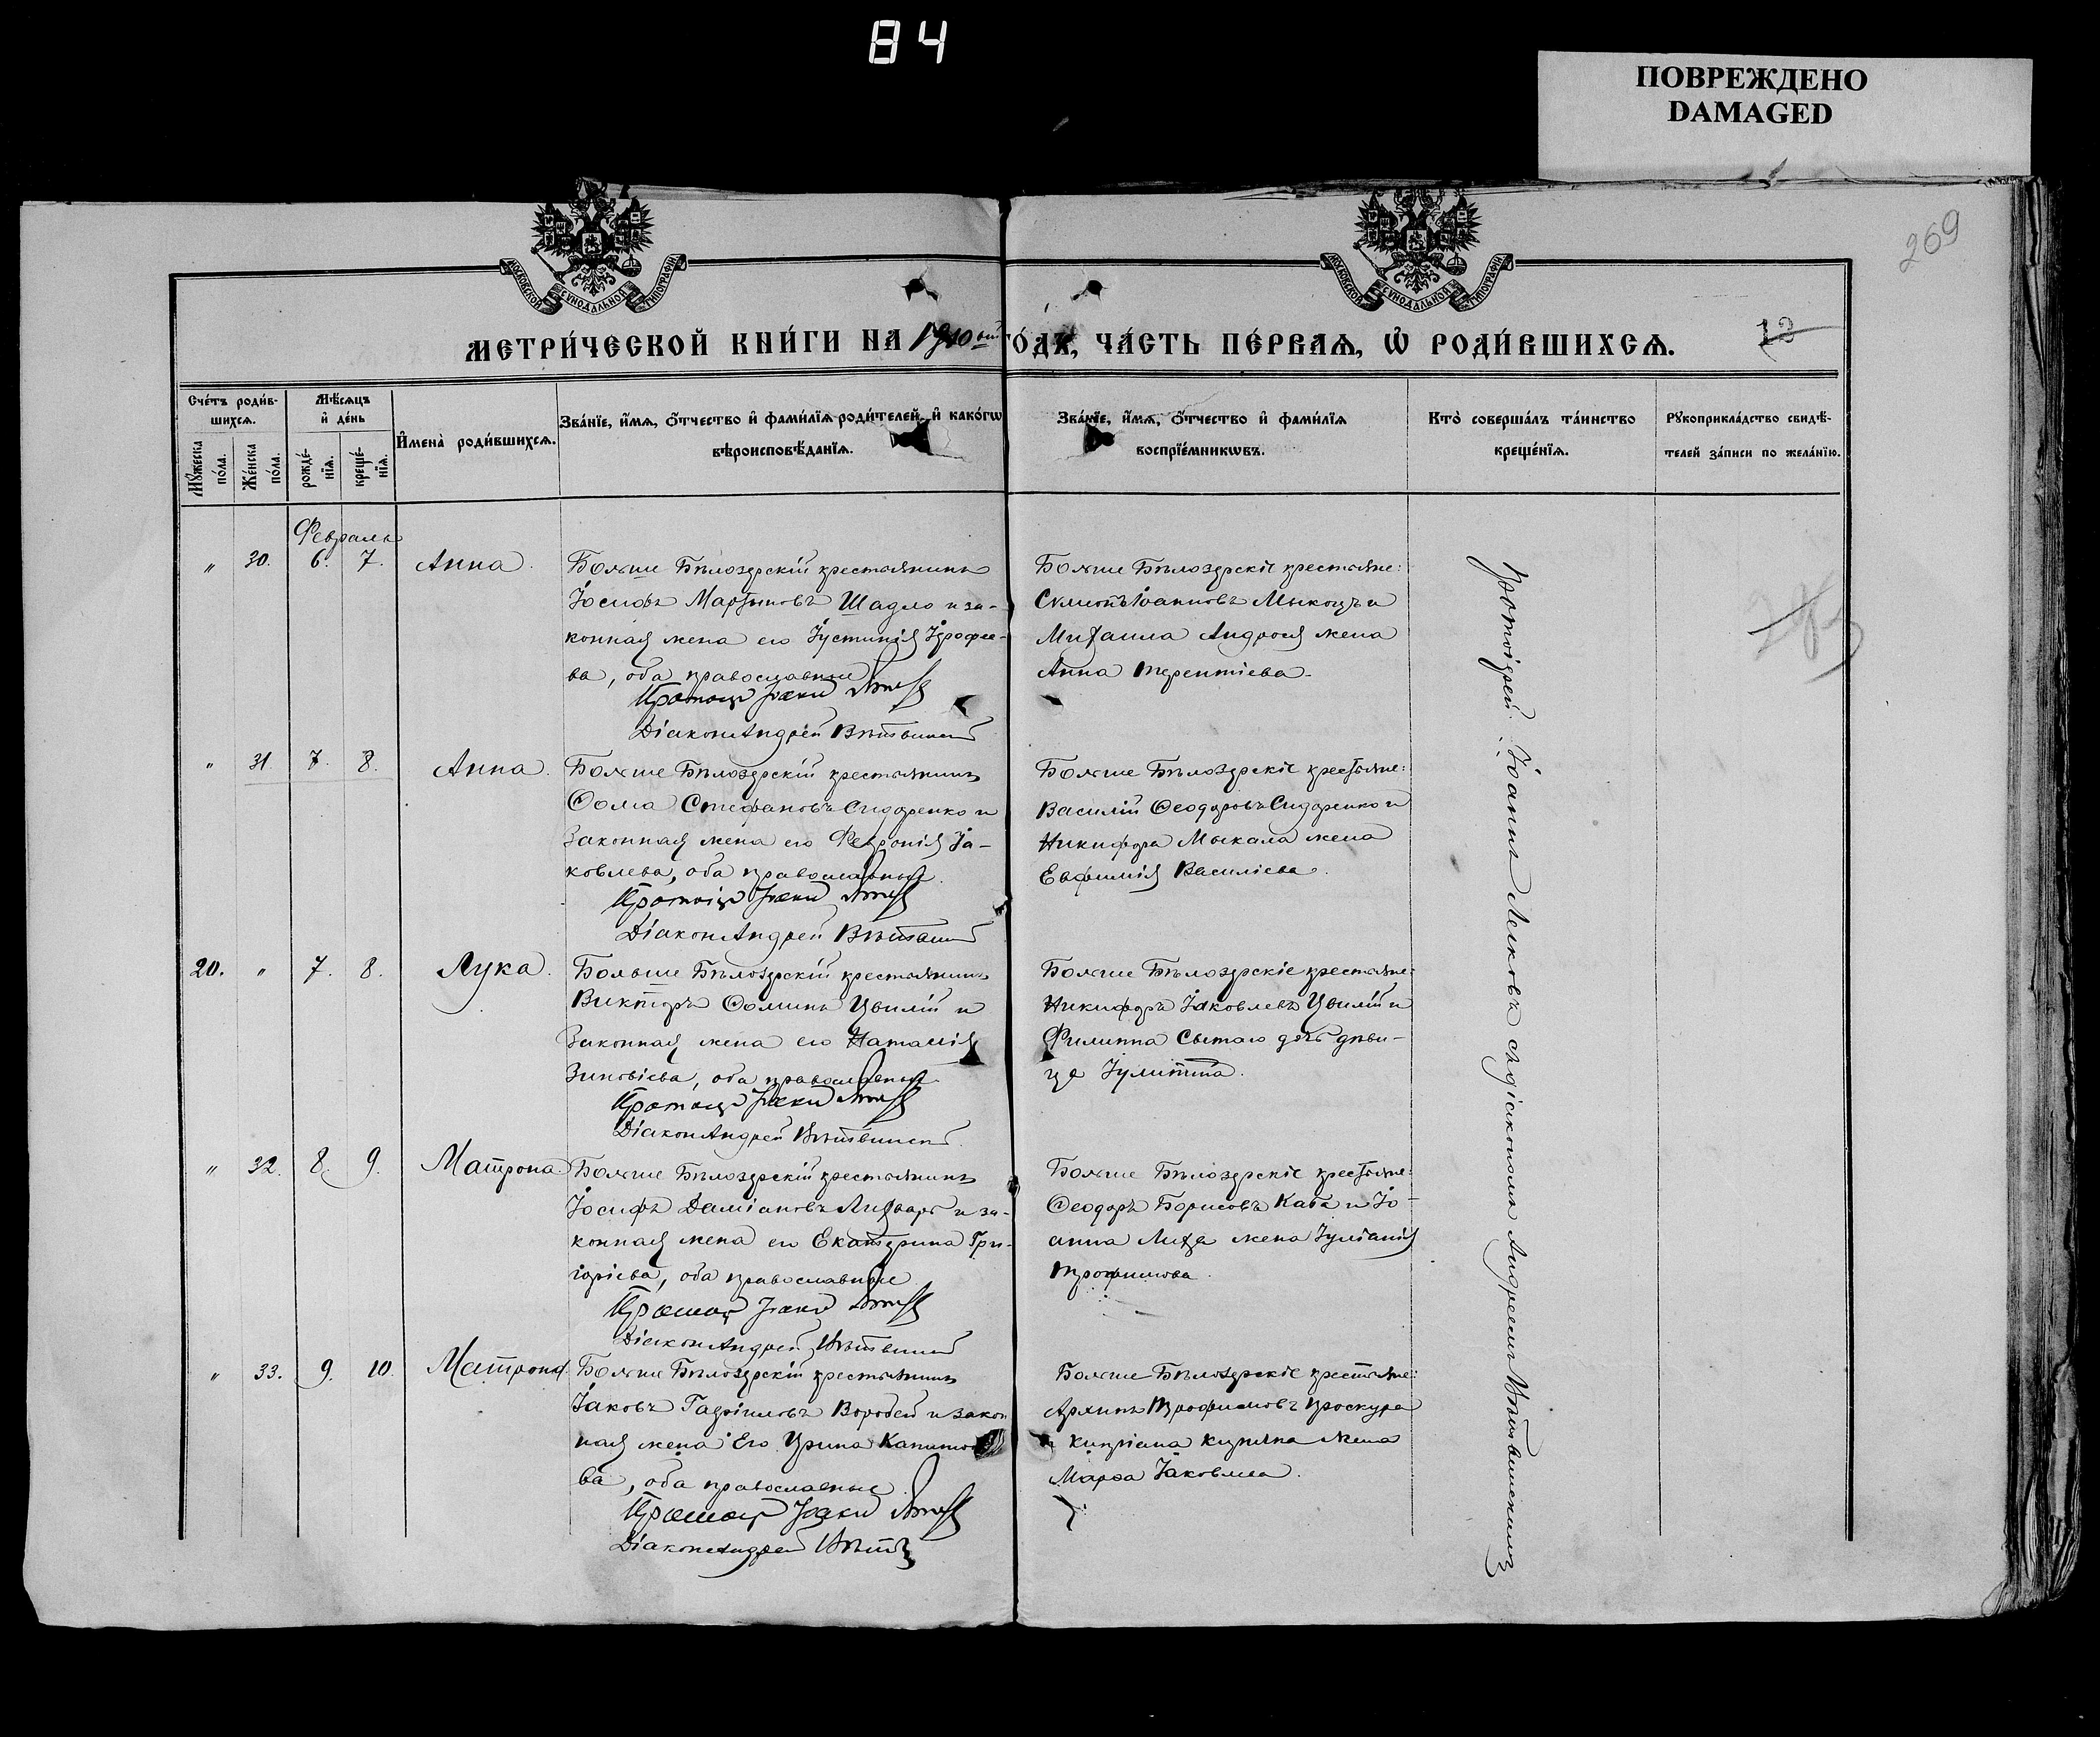 84
ПОВРЕЖДЕНО
DAMAGED
269
МОСКОВСКОЙ СѴНОДАЛЬНОЙ ТИПОГРАФІИ
МОСКОВСКОЙ СѴНОДАЛЬНОЙ ТИПОГРАФІИ
МЕТРИ́ЧЕСКОЙ КНИ́ГИ НА 1910ый ГО́ДЪ, ЧА́СТЬ ПЕ́РВАѦ, Ѡ РОДИ́ВШИХСѦ.
13
Сче́тъ роди́в-
шихсѧ.
Мꙋ́жеска по́ла.
Же́нска по́ла.
Мѣ́сѧцъ
и҆ де́нь
рожде́-
нїѧ.
креще́-
нїѧ.
И҆мена̀ роди́вшихсѧ.
Зва́нїе, и҆́мѧ, ѻ҆́тчество и҆ фами́лїѧ роди́телей, и҆ како́гѡ
вѣроисповѣ́данїѧ.
Зва́нїе, и҆́мѧ, ѻ҆́тчество и҆ фами́лїѧ
воспрїе́мникѡвъ.
Кто̀ соверша́лъ та́инство
креще́нїѧ.
Рꙋкоприкла́дство свидѣ́-
телей за́писи по жела́нїю.
Февраль
" 30. 6. 7. Анна.
Больше Бѣлозерскій крестьянинъ
Іосифъ Мартиновъ Шадло и за-
конная жена его Іустинія Іерофее-
ва, оба православные
Діаконъ Андрей Вѣтвинскій
Больше Бѣлозерскіе крестьяне:
Симонъ Іоанновъ Мыкоцъ и
Михаила Андрося жена
Анна Терентіева.
" 31. 7. 8. Анна.
Больше Бѣлозерскій крестьянинъ
Ѳома Стефановъ Сидоренко и
законная жена его Февронія Іа-
ковлева, оба православные.
Діаконъ Андрей Вѣтвинскій
Больше Бѣлозерскіе крестьяне:
Василій Ѳеодоровъ Сидоренко и
Никифора Мыкала жена
Евфимія Василіева.
20. " 7. 8. Лука.
Больше Бѣлозерскій крестьянинъ
Викторъ Ѳоминъ Цвилій и
законная жена его Наталія
Зиновіева, оба православные.
Діаконъ Андрей Вѣтвинскій
Больше Бѣлозерскіе крестьяне:
Никифоръ Іаковлевъ Цвилій и
Филиппа Сытаго дочь дѣви-
ца Іулитта.
" 32. 8. 9. Матрона.
Больше Бѣлозерскій крестьянинъ
Іосифъ Даміановъ Лихваръ и за-
конная жена его Екатерина Гри-
горіева, оба православные
Діаконъ Андрей Вѣтвинскій
Больше Бѣлозерскіе крестьяне:
Ѳеодоръ Борисовъ Каба и Іо-
анна Лихе жена Іуліанія
Трофимова.
" 33. 9. 10. Матрона.
Больше Бѣлозерскій крестьянинъ
Іаковъ Гавріиловъ Воробей и закон
ная жена Его Ирина Капитоно
ва, оба православные.
Діаконъ Андрей
Больше Бѣлозерскіе крестьяне:
Архипъ Трофимовъ Проскура
и Кипріана Купьяна жена
Марѳа Іаковлева.
Протоіерей Іоаннъ съ діакономъ Андреемъ Вѣтвинскимъ